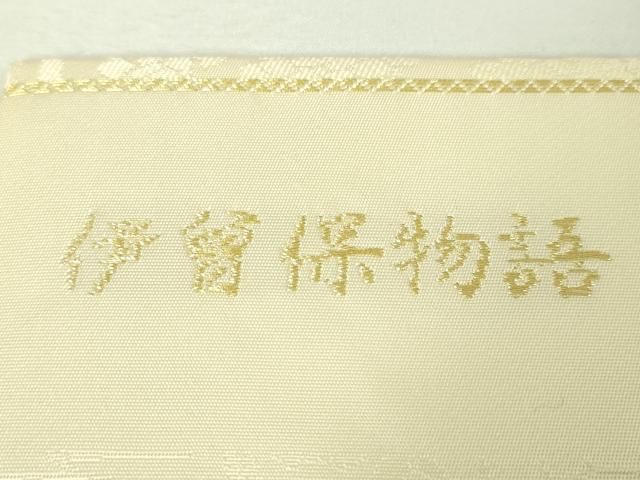 伊曾保物語